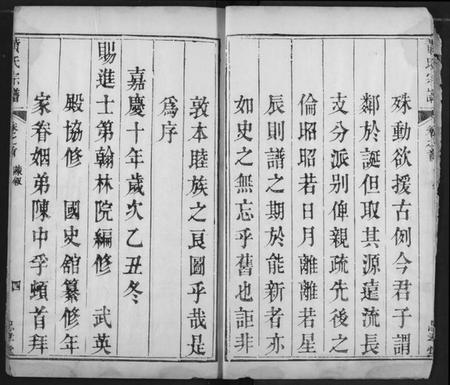 殊動欲援古例今君子謂
鄰於誕但取其源遠流長
支分派别俾親疏先後之
倫昭昭若日月離離若星
辰則譜之期於能新者亦
如史之無忘乎舊也詎非
敦本睦族之良圖乎哉是
為序
嘉慶十年歲次乙丑冬
賜進士第翰林院編修 武英
殿協修 國史舘纂修年
家眷姻弟陳中孚頓首拜
黄氏宗譜 卷之首 譜敘 四